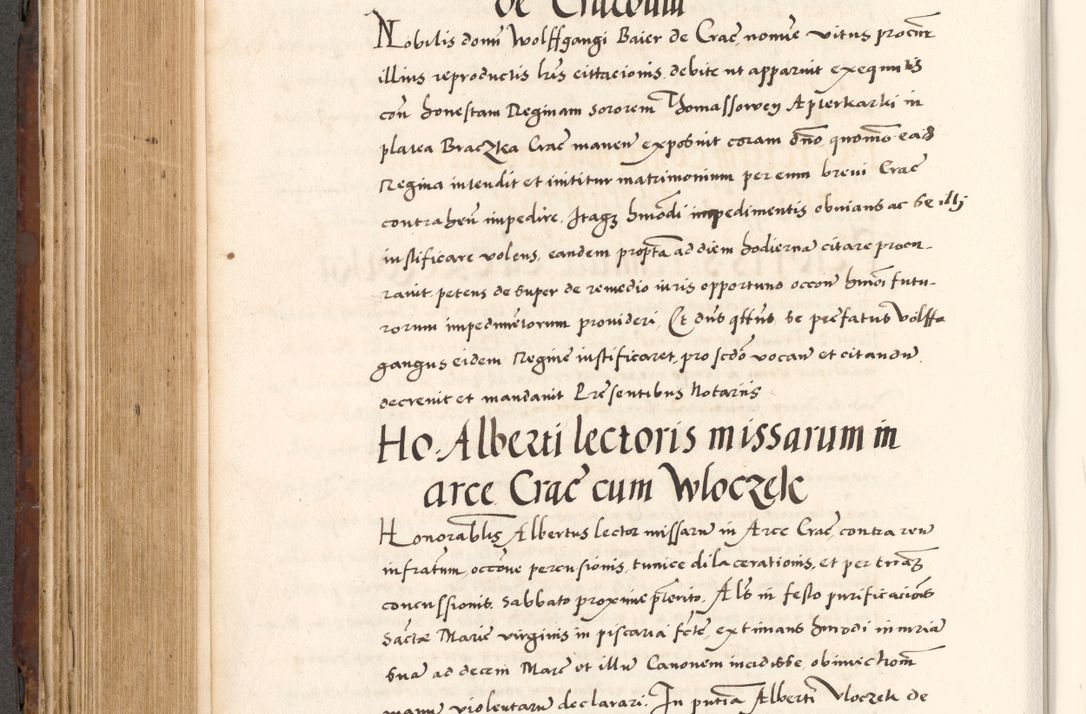 de Cracouia
Nobilis domi Wolffgangi Baier de Crac, nomie vitus procur
illius reproductis lris cittacionis, debite ut apparuit exequutis
con honestam Reginam sororem Thomassowey Apterkarki in
platea Braczka Crac manen exposuit coram dno, quomo ead
Regina intendit et inititur matrimonium per eum breui Crac
contrahen impedire. Itaqz hmodi impedimentis obuians ac se illi
iustificare volens, eandem propta ad diem hodierna citare procu-
rauit petens de super de remedio iuris opportuno occon hmoi futu-
rorum impedimetorum prouideri. Et dns qttus se prefatus Volff-
gangus eidem Regine iustificaret, pro scdo vocan et citandu
decreuit et mandauit Presentibus Notariis
Ho. Alberti lectoris missarum in
arce Crac cum Wloczek
Honorablis Albertus lector missaru in Arce Crac, contra reu
infratum, occone percusionis, tunice dilacerationis, et per terraz
concussionis. Sabbato proxime pterito. Als in festo purificaciois
Sacte Marie virginis in piscaria fcte, extimans hmodi iniuria
sua ad decem Marc et illu Canonem incidisse ob iniectiom
manu violentaru declarari. In putia Alberti Vloczek de